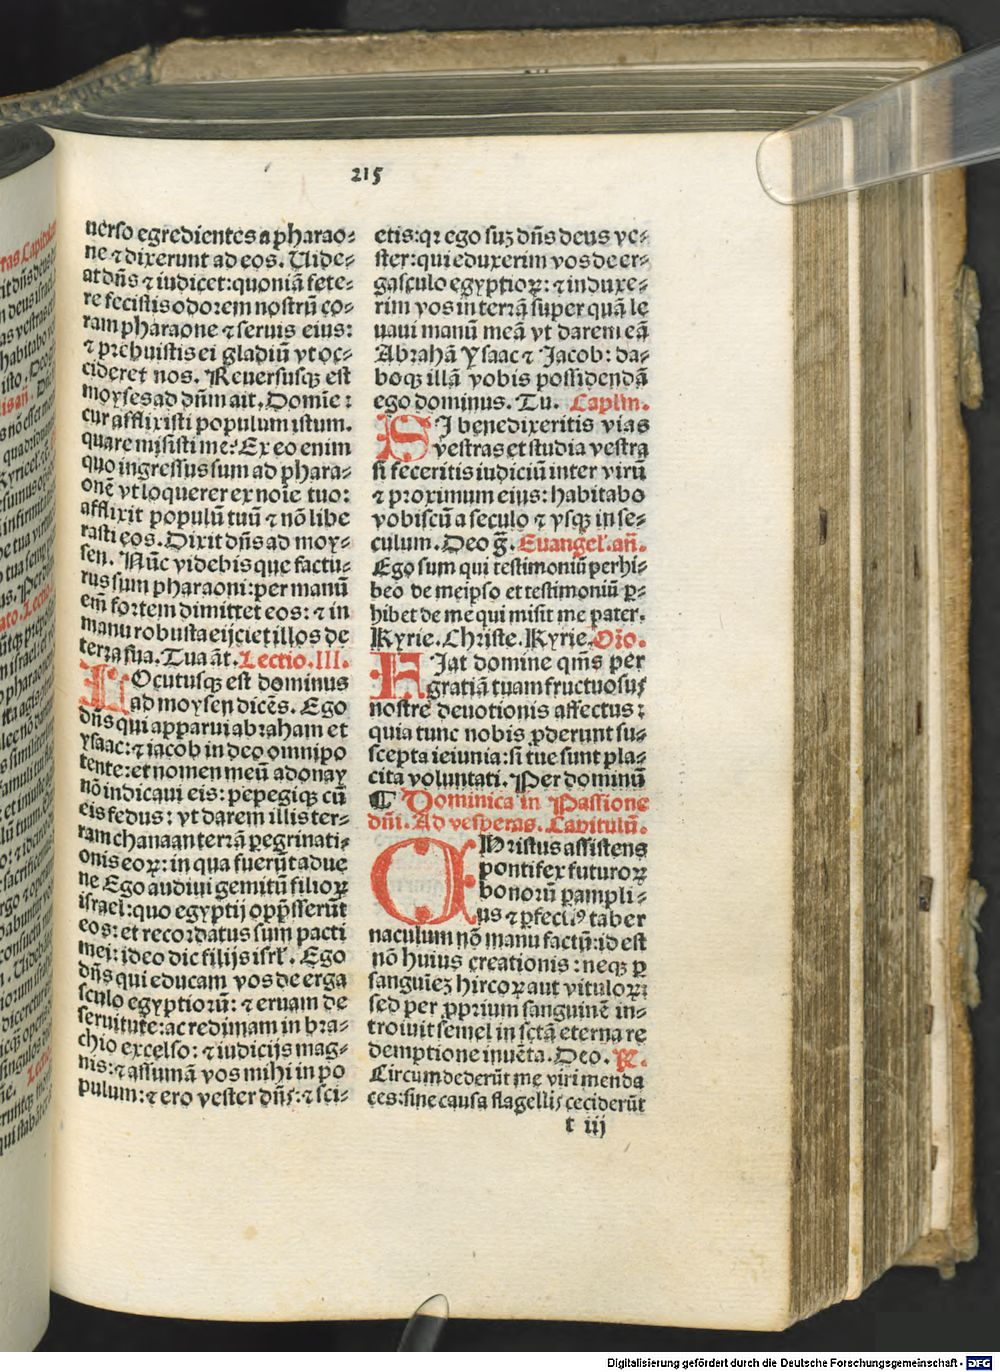 215
uerso egredientes a pharao⸗
ne ⁊ dixerunt ad eos. Uide⸗
at dñs ⁊ iudicet: quoniã fete⸗
re fecistis odorem nostrũ co⸗
ram pharaone ⁊ seruis eius:
⁊ prebuistis ei gladiũ vt oc⸗
cideret nos. Reuersusqꝫ est
moyses ad dñm ait. Domĩe:
cur afflixisti populum istum.
quare misisti me: Ex eo enim
quo ingressus sum ad phara⸗
onẽ vt loquerer ex noĩe tuo:
afflixit populũ tuũ ⁊ nõ libe
rasti eos. Dixit dñs ad moy⸗
sen. Nũc videbis que factu⸗
rus sum pharaoni: per manũ
em̃ fortem dimittet eos: ⁊ in
manu robusta eijciet illos de
terra sua. Tu aũt. Lectio. III.
LOcutusqꝫ est dominus
ad moysen dicẽs. Ego
dñs qui apparui abraham et
ysaac: ⁊ iacob in deo omnipo
tente: et nomen meũ adonay
nõ indicaui eis: pepegiqꝫ cũ
eis fedus: vt darem illis ter⸗
ram chanaan terrã peregrinati⸗
onis eoꝝ: in qua fuerũt adue
ne Ego audiui gemitũ filioꝝ
israel: quo egyptij opp̃sserũt
eos: et recordatus sum pacti
mei: ideo dic filijs isrl̃. Ego
dñs qui educam vos de erga
sculo egyptiorũ: ⁊ eruam de
seruitute: ac redimam in bra⸗
chio excelso: ⁊ iudicijs mag⸗
nis: ⁊ assumã vos mihi in po
pulum: ⁊ ero vester dñs: ⁊ sci⸗
etis: qꝛ ego suꝫ dñs deus ve⸗
ster: qui eduxerim vos de er⸗
gasculo egyptioꝝ: ⁊ induxe⸗
rim vos in terrã super quã le
uaui manũ meã vt darem eã
Abrahã Ysaac ⁊ Jacob: da⸗
boqꝫ illã vobis possidendã
ego dominus. Tu. Caplm̃.
SI benedixeritis vias
vestras et studia vestra
si feceritis iudiciũ inter virũ
⁊ proximum eius: habitabo
vobiscũ a seculo ⁊ vsqꝫ in se⸗
culum. Deo g̃. Euangel'. añ.
Ego sum qui testimoniũ perhi⸗
beo de meipso et testimoniũ ꝑ⸗
hibet de me qui misit me pater.
Kyrie. Christe. Kyrie. Or̃o.
FIat domine qm̃s per
gratiã tuam fructuosus
nostre deuotionis affectus:
quia tunc nobis ꝓderunt su⸗
scepta ieiunia: si tue sunt pla⸗
cita voluntati. Per dominũ
¶ Dominica in Passione
dñi. Ad vesperas. Capitulũ.
CHristus assistens
pontifex futuroꝝ
bonorũ ꝑ ampli⸗
us ⁊ ꝑfectiꝰ taber
naculum nõ manu factũ: id est
nõ huius creationis: neqꝫ ꝑ
sanguineꝫ hircoꝝ aut vituloꝝ:
sed per ꝓprium sanguinẽ in⸗
troiuit semel in sctã eterna re
demptione inuẽta. Deo. ℟.
Circumdederũt me viri menda
ces: sine causa flagellis ceciderũt
t iij
Digitalisierung gefördert durch die Deutsche Forschungsgemeinschaft - DFG